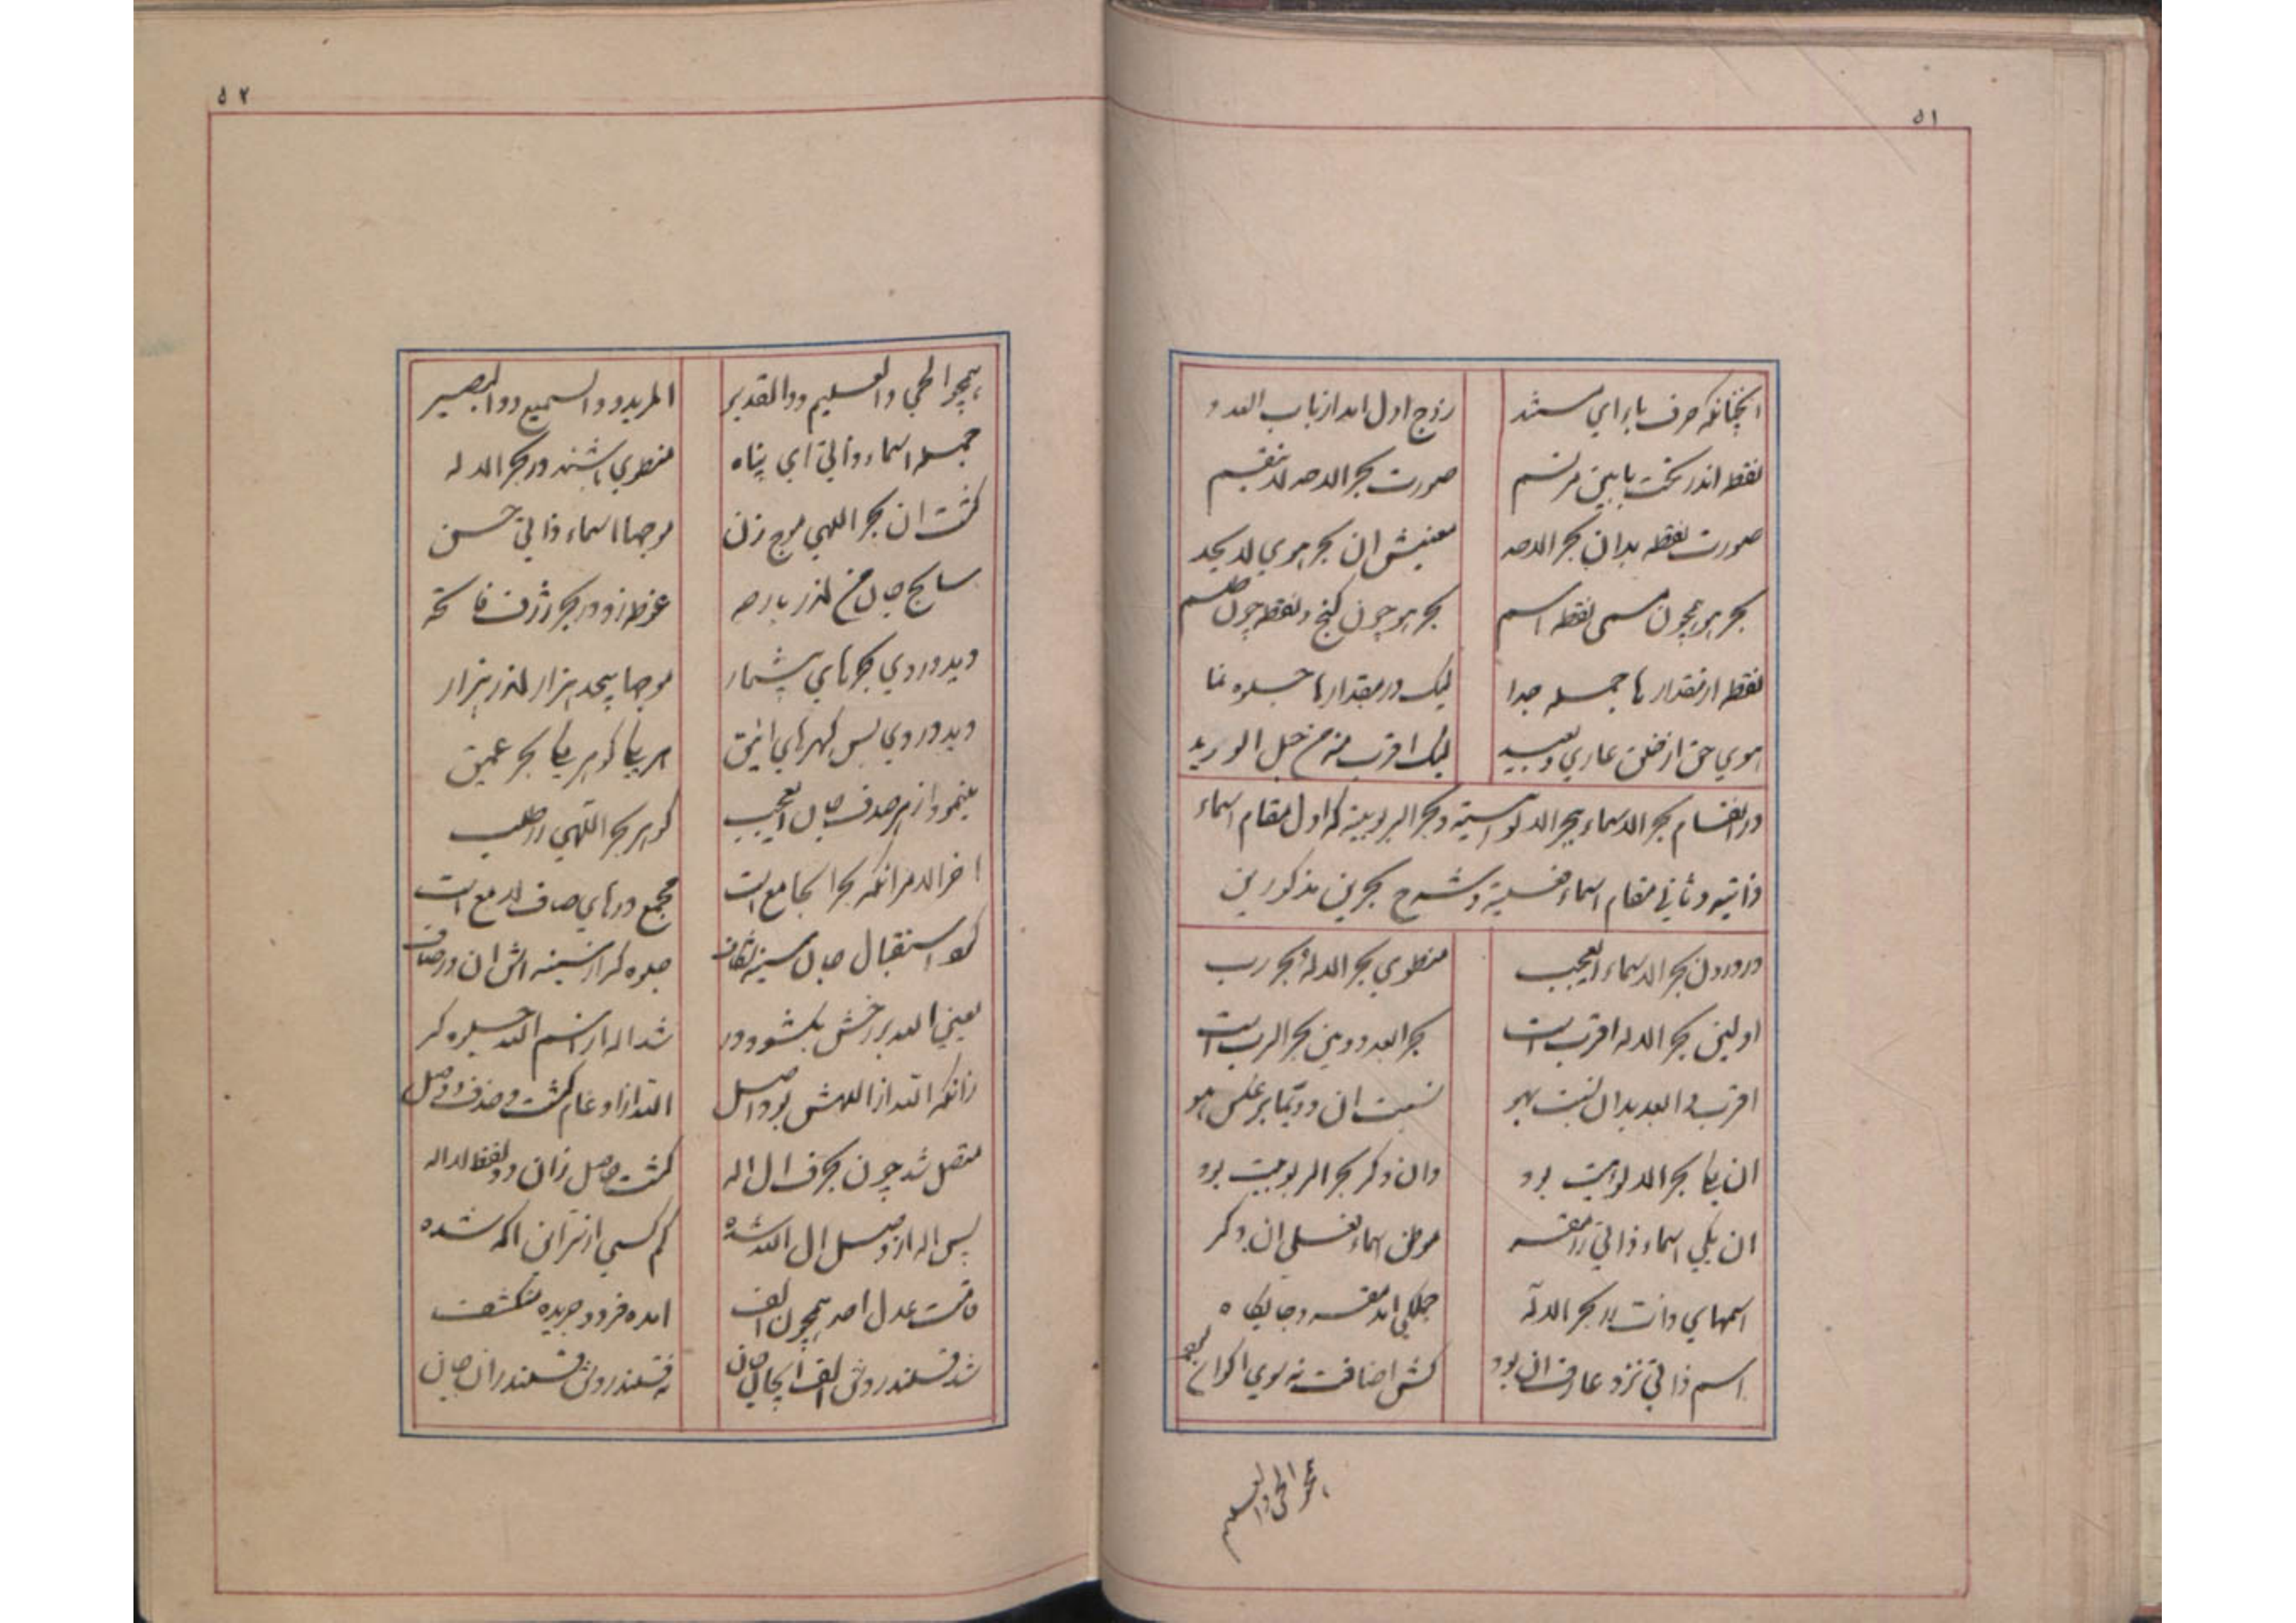 ۵۱
آنچنانکه حرف با ای مستند
زوج اول آمد از باب العدد
نقطه اندر تحت با بین مرتسم
صورت بحر الاحد لا ینقسم
صورت نقطه بدان بحر الاحد
معنیش آن بحر هوی لا یحد
بحر هو همچون مسمی نقطه اسم
بحر هو چون گنج و نقطه چون طلسم
نقطه از مقدارها جمله جدا
لیک در مقدارها جلوه نما
هوی حق از خلق عاری و بعید
لیک اقرب منه من حبل الورید
در انقسام بحر الاسماء ببحر الالوهیة و بحر الربوبیة که اول مقام اسماء
ذاتیه و ثانی مقام اسماء فعلیة و شرح بحرین مذکورین
در درون بحر الاسماء العجب
منطوی بحر الاله و بحر رب
اولین بحر الاله اقرب است
بحر ابعد دومین بحر الرب است
اقرب و ابعد بدان نسبت بهو
نسبت آن دو بما بر عکس هو
آن یکی بحر الالوهیت بود
وان دگر بحر الربوبیت بود
آن یکی اسماء ذاتی را مقر
موطن اسماء فعلی آن دگر
اسمهای ذات را بحر الاله
جملگی آمد مقر و جایگاه
اسم ذاتی نزد عارف آن بود
کش اضافت نه سوی اکوان
همچو الحی و العلیم
۵۲
همچو الحی و العلیم و والقدیر
المرید و والسمیع و والبصیر
جمله اسماء ذاتی ای پناه
منطوی باشند در بحر الاله
گشت آن بحر اللهی موج زن
موجها اسماء ذاتی حسن
سابح جان من اندر
غوطه زد در بحر ژرف
دید در وی بحرهای بیشمار
موجها بیحد هزار اندر هزار
دید در وی بس گهرهای انیق
هر یکی گوهر یکی بحر عمیق
بنمود از هر صدف جان العجب
گوهر بحر اللهی را طلب
آخر الامر آنکه بحرا جامع است
مجمع درهای صاف لامع است
کرد استقبال جان سینه شکاف
جلوه گر از سینه اش آن در صاف
یعنی الله بر رخش بگشود در
شد اله از اسم الله جلوه گر
زانکه الله از الهش بود اصل
الله از ادغام گشت و حذف و وصل
متصل شد چون بحرف ال اله
گشت حاصل زان دو لفظ الاله
پس اله از وصل ال الله شده
کم کسی از سر این آگه شده
قامت عدل احد همچون الف
آمده فرد و جریده منکشف
شد قلندروش الف ایجان جان
نه قلندروش قلندر آن جان